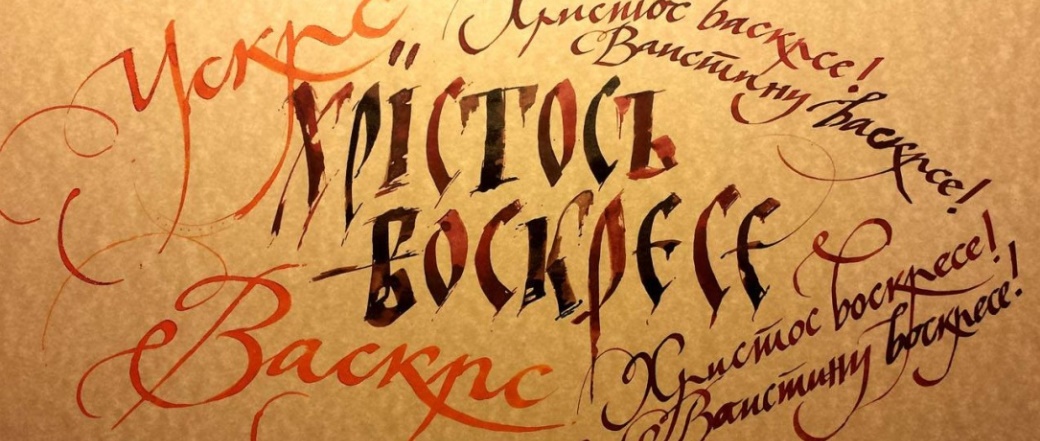 Ускрс
Христос васкрсе!
Ваистину васкрсе!
Хрїстосъ
воскресе
Васкрс
Христос воскресе!
Ваистину воскресе!